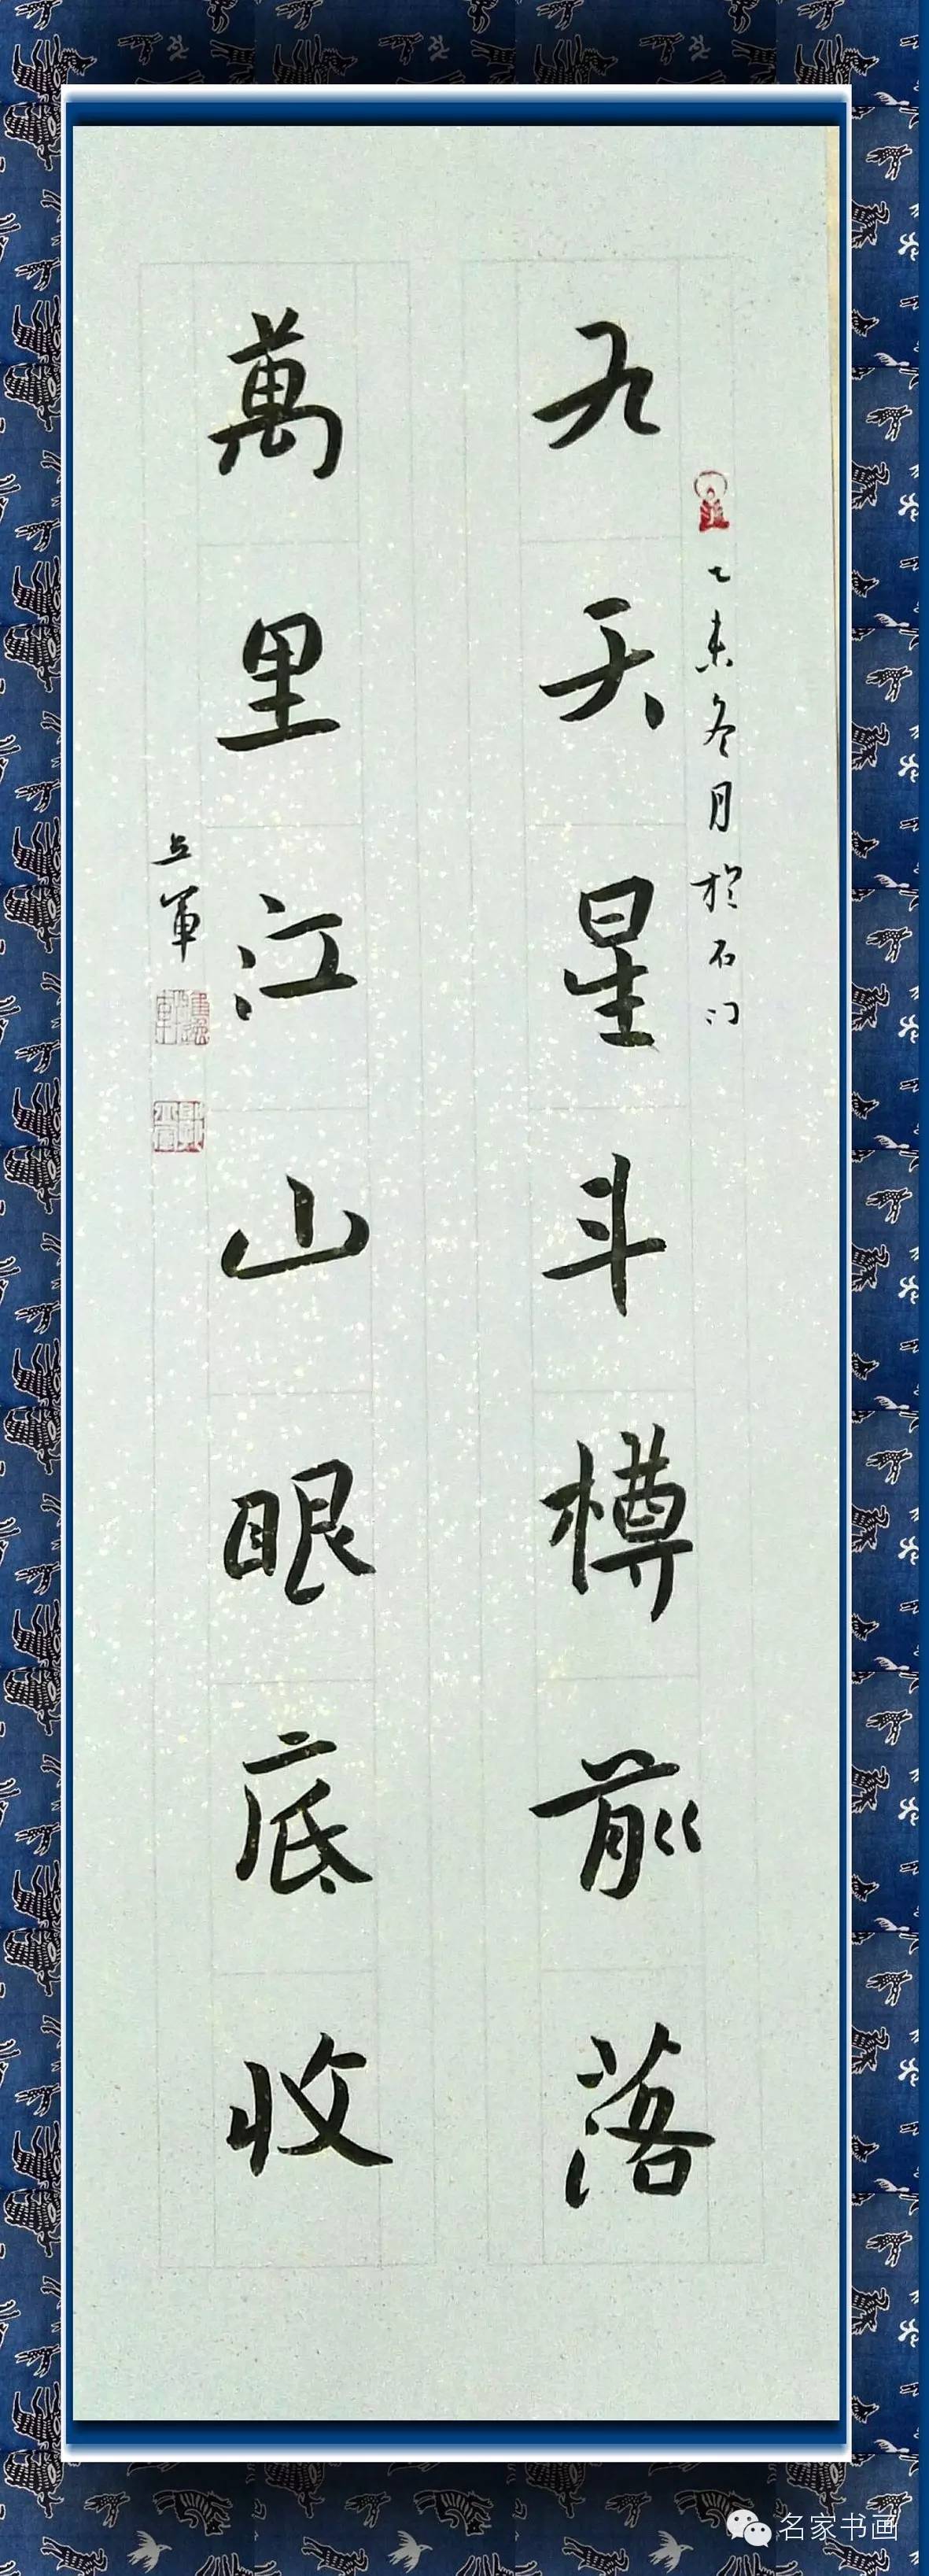 乙未冬月於石门
九天星斗樽前落
萬里江山眼底收
名家书画